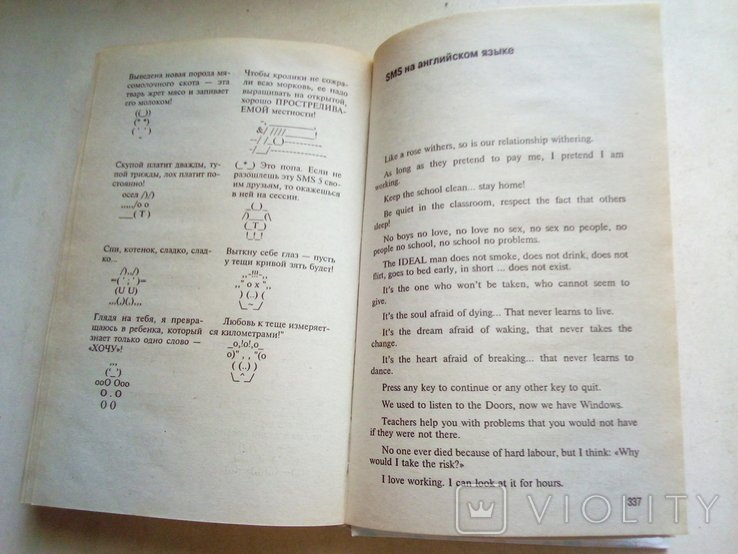 Выведена новая порода мя-
сомолочного скота — эта
тварь жрет мясо и запивает
его молоком!
((_))
(* *)
( ' ' )
_
Скупой платит дважды, ту-
пой трижды, лох платит по-
стоянно!
осел /)/)
,,,,,/о о
___( Т )
Спи, котенок, сладко, слад-
ко...
/),,/)
=( ' ; ' )=
(U U)
,,,(,)(,),,,
Глядя на тебя, я превра-
щаюсь в ребенка, который
знает только одно слово —
«ХОЧУ»!
,,,
(‘_’)
ооО Ооо
О . О
О О
Чтобы кролики не сожра-
ли всю морковь, ее надо
выращивать на открытой,
хорошо ПРОСТРЕЛИВА-
ЕМОЙ местности!
(_*_) Это попа. Если не
разошлешь эту SMS 5 сво-
им друзьям, то окажешься
в ней на сессии.
_(_)_
/)___(\
\_(T)_
!_!_!
Выткну себе глаз — пусть
у тещи кривой зять будет!
,,-!!!-,,
,," о х ",,
) (..) (
\_~_/
Любовь к теще измеряет-
ся километрами!"
_о,!о!,о_
о)" , , "(о
( (..) )
\_^_/
SMS на английском языке
Like a rose withers, so is our relationship withering.
As long as they pretend to pay me, I pretend I am
working.
Keep the school clean... stay home!
Be quiet in the classroom, respect the fact that others
sleep!
No boys no love, no love no sex, no sex no people, no
people no school, no school no problems.
The IDEAL man does not smoke, does not drink, does not
flirt, goes to bed early, in short ... does not exist.
It's the one who won't be taken, who cannot seem to
give.
It's the soul afraid of dying... That never learns to live.
It's the dream afraid of waking, that never takes the
change.
It's the heart afraid of breaking... that never learns to
dance.
Press any key to continue or any other key to quit.
We used to listen to the Doors, now we have Windows.
Teachers help you with problems that you would not have
if they were not there.
No one ever died because of hard labour, but I think: «Why
would I take the risk?»
I love working. I can look at it for hours.
337
VIOLITY